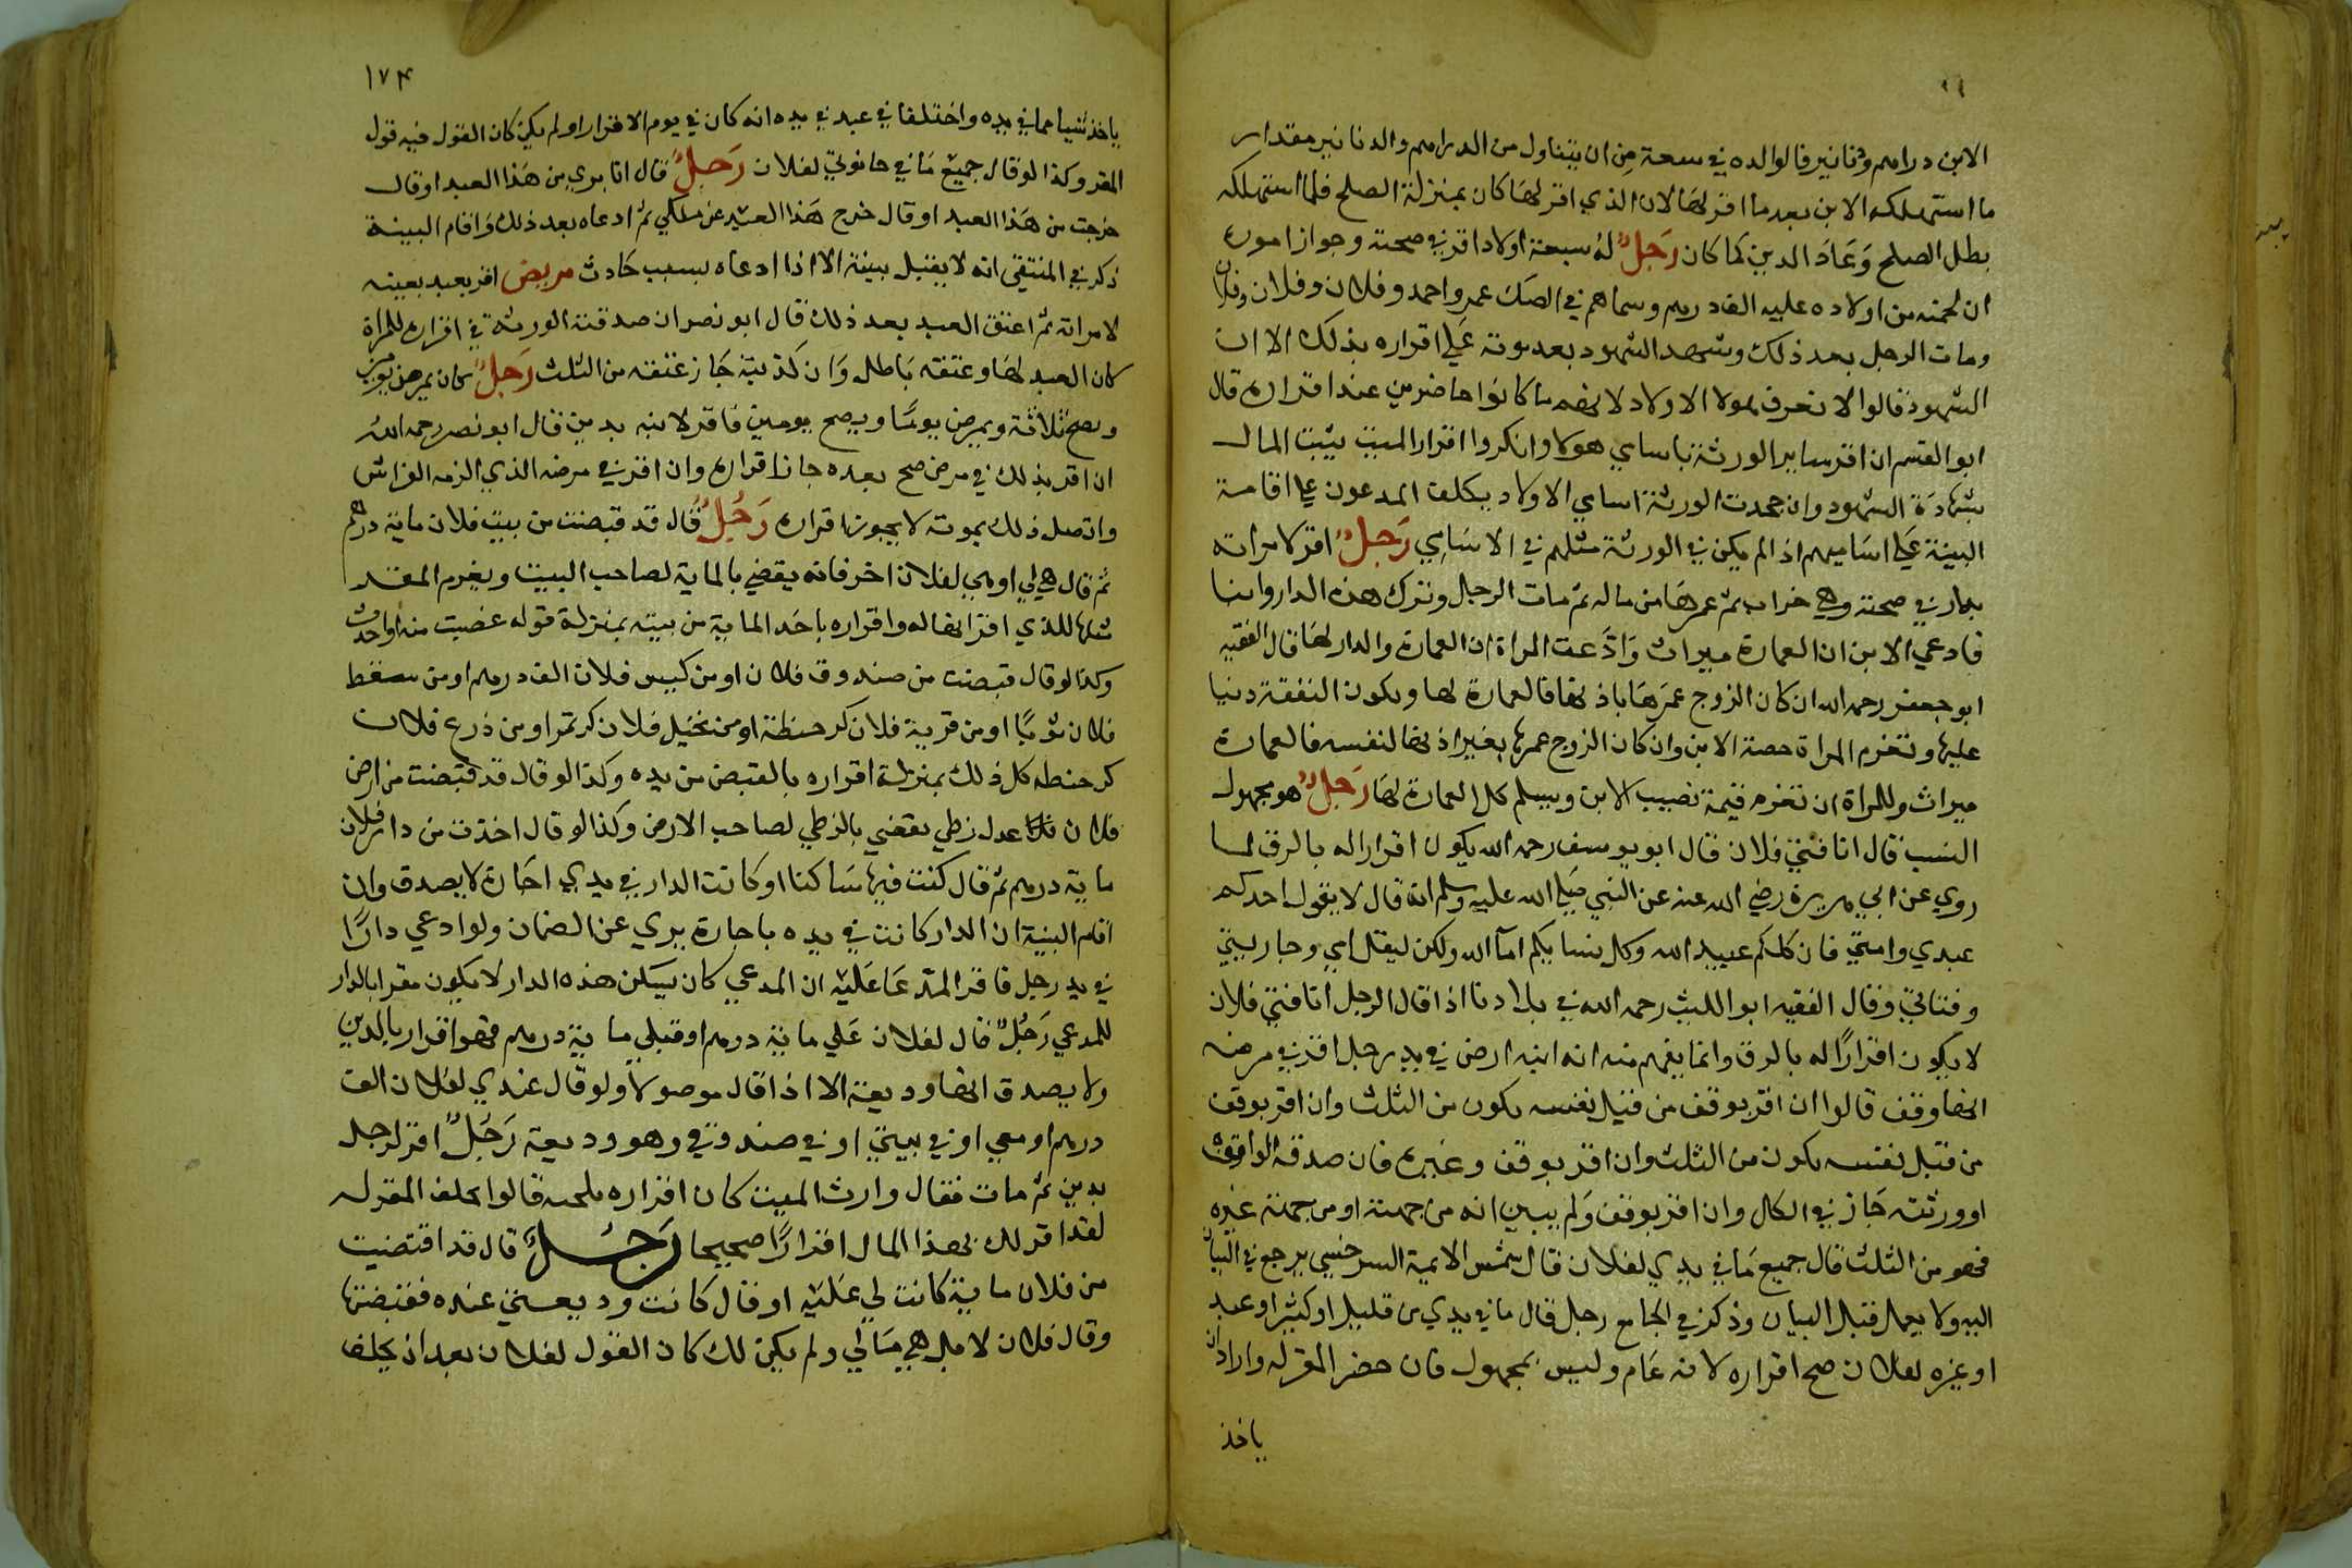 الابن دراهم ودنانير فالوالده في سعة من ان يتناول من الدراهم والدنانير مقدار
ما استهلكه الابن بعد ما اقر لها لان الذي اقر لها كان بمنزلة الصلح فلما استهلكه
بطل الصلح وَعَادَ الدين كما كان رَجلٌ لهُ سبعة اولاد اقر في صحته وجواز اموره
ان لخمسه من اولاده عليه الف درهم وسماهم في الصك عمر واحمد وفلان وفلان وفلان
ومات الرجل بعد ذلك وشهد الشهود بعد موته عَلي اقراره بذلك الا ان
الشهود قالوا لا نعرف هولا الاولاد لانهم ما كانوا حاضرين عند اقراره قال
ابو القسم ان اقر ساير الورثة باسامي هولا وانكروا اقرار الميت يثبت المال
بشهادَة الشهود وان جحدت الورثة اسامي الاولاد يكلف المدعون علي اقامة
البينة عَلي اسَاميهم اذا لم يكن في الورثة مثلهم في الاسَامِي رَجلٌ اقر لامراته
بدار في صحته وهي خراب ثم عمرهَا من ماله ثم مات الرجل وترك هذه الدار وابنا
فادعي الابن ان العمارة ميراث وَادَّعت المراة ان العمارة والدار لهَا قال الفقيه
ابو جعفر رحمه الله ان كان الزوج عمرَهَا باذنها فالعمارة لها ويكون النفقة دينا
عليها وتغرم المراة حصة الابن وان كان الزوج عمرها بغير اذنها لنفسه فالعمارة
ميراث وللمراة ان تغرم قيمة نصيب الابن ويسلم كل العمارة لهَا رَجلٌ هو مجهول
النسب قال انا فتي فلان قال ابو يوسف رحمه الله يكون اقرارا له بالرق لما
روي عن ابي هريرة رضي الله عنه عن النبي صَلي الله عليه وسلم انه قال لا يقول احدكم
عبدي وامتي فان كلكم عبيد الله وكل نسايكم امآ الله ولكن ليقل امي وجاريتي
وفتاتي وقال الفقيه ابو الليث رحمه الله في بلادنا اذا قال الرجل انا فتي فلان
لا يكون اقرارًا له بالرق وانما يفهم منه انه ابنه ارض في يد رجل اقر في مرضه
انها وقف قالوا ان اقر بوقف من قبل نفسه يكون من الثلث وان اقر بوقف
من قبل نفسه يكون من الثلث وان اقر بوقف وغيره فان صدقه الواقف
او ورثته جَاز في الكل وان اقر بوقف وَلم يبين انه من جهته او من جهة غيره
فهو من الثلث قال جميع مَا في يدي لفلان قال شمس الايمة السرخسي يرجع في البيان
اليه ولا يعمل قبل البيان وذكر في الجامع رجل قال ما في يدي من قليل او كثير او عبد
او غيره لفلان صح اقراره لانه عَام وليس بمجهول فان حضر المقر له واراد ان
ياخذ
١٧٤
ياخذ شيا مما في يده واختلفا في عبد في يده انه كان في يوم الاقرار او لم يكن كان القول فيه قول
المقر وكذا لو قال جميع مَا في حانوتي لفلان رَجلٌ قال انا بري من هَذا العبد او قال
خرجت من هَذا العبد او قال خرج هَذا العبد عن ملكي ثم ادعاه بعد ذلك وَاقام البينة
ذكر في المنتقي انه لا يقبل بينة الا اذا ادعاه بسبب حَادث مريض اقر بعبد بعينه
لامراته ثم اعتق العبد بعد ذلك قال ابو نصر ان صدقته الورثة في اقراره للمراة
كان العبد لهَا وعتقه بَاطل وَان كذبته جَاز عتقه من الثلث رَجلٌ كان يمرض يومين
ويصح ثلاثة ويمرض يومًا ويصح يومين فاقر لابنه بدين قال ابو نصر رحمه الله
ان اقر بذلك في مرض صح بعده جاز اقراره وان اقر في مرضه الذي الزمه الفراش
واتصل ذلك بموته لا يجوز اقراره رَجُلٌ قال قد قبضت من بيت فلان ماية درهم
ثم قال هي لي او هي لفلان اخر فانه يقضي بالماية لصاحب البيت ويغرم المقر
مثلها للذي اقر انها له واقراره باخذ الماية من بيته بمنزلة قوله غصبت منه او اخذت
وكذا لو قال قبضت من صندوق فلان او من كيس فلان الف درهم او من سفط
فلان ثوبًا او من قرية فلان كر حنطة او من نخيل فلان كر تمر او من زرع فلان
كر حنطه كل ذلك بمنزلة اقراره بالقبض من يده وكذا لو قال قد قبضت من ارض
فلان عدل زطي يقضي بالزطي لصاحب الارض وكذا لو قال اخذت من دار فلان
ماية درهم ثم قال كنت فيها سَاكنا او كانت الدار في يدي اجَارة لا يصدق وان
اقام البينة ان الدار كانت في يده باجارة بري عن الضمان ولو ادعي دارًا
في يد رجل فاقر المدعَا عَليْه ان المدعي كان يسَكن هذه الدار لا يكون مقرا بالدار
للمدعي رَجُلٌ قال لفلان عَلي ماية درهم او قبلي ماية درهم فهو اقرار بالدين
ولا يصدق انها وديعة الا اذا قال موصولاً ولو قال عندي لفلان الف
درهم او معي او في بيتي او في صندوقي فهو وديعة رَجُلٌ اقر لرجل
بدين ثم مات فقال وارث الميت كان اقراره تلجيه قالوا يحلف المقر له
لقد اقر لك بهذا المال اقرارًا صحيحا رَجُلٌ قال قد اقتضيت
من فلان ماية كانت لي عَليْه او قال كانت وديعتي عنده فقبضتها
وقال فلان لا بل هي مَالي ولم يكن لك كان القول لفلان بعد ان يحلف